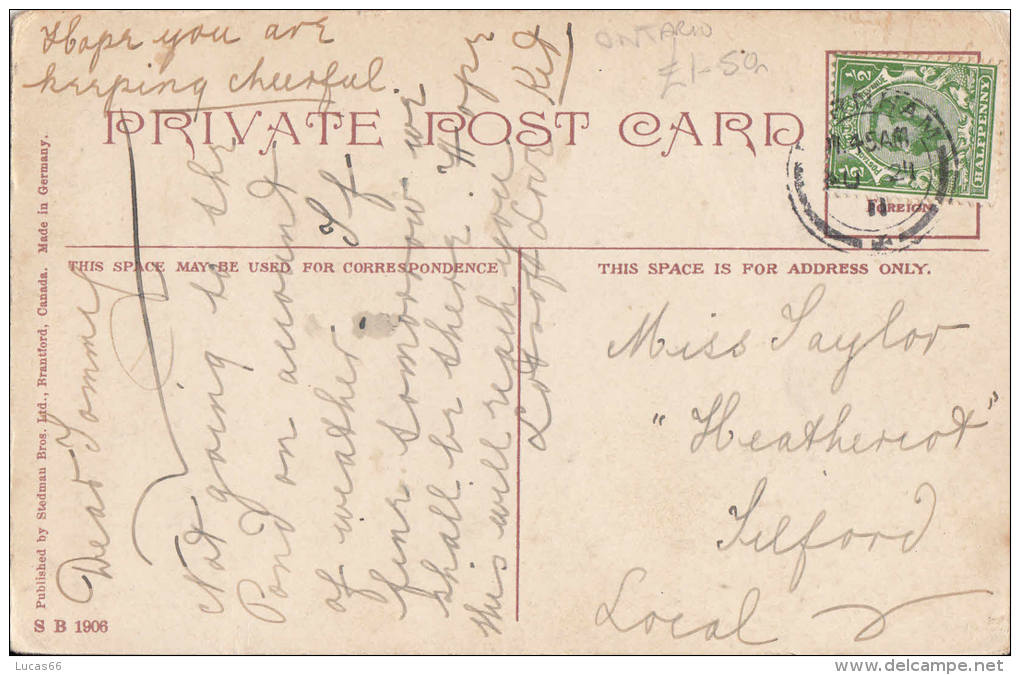 Hope you are
keeping cheerful
ONTARIO
£1-50
PRIVATE POST CARD
THIS SPACE MAY BE USED FOR CORRESPONDENCE
THIS SPACE IS FOR ADDRESS ONLY.
FOREIGN
HALFPENNY
½ ½
45AM
AU 24
11
Dear Tommy
Not going to the
Pond on account
of weather. If
fine somorrow we
shall be there. Hope
this will reach you
Lots of Love
Miss Taylor
"Heathercot"
Tilford
Local
Published by Stedman Bros. Ltd., Brantford, Canada. Made in Germany.
S B 1906
Lucas66
www.delcampe.net